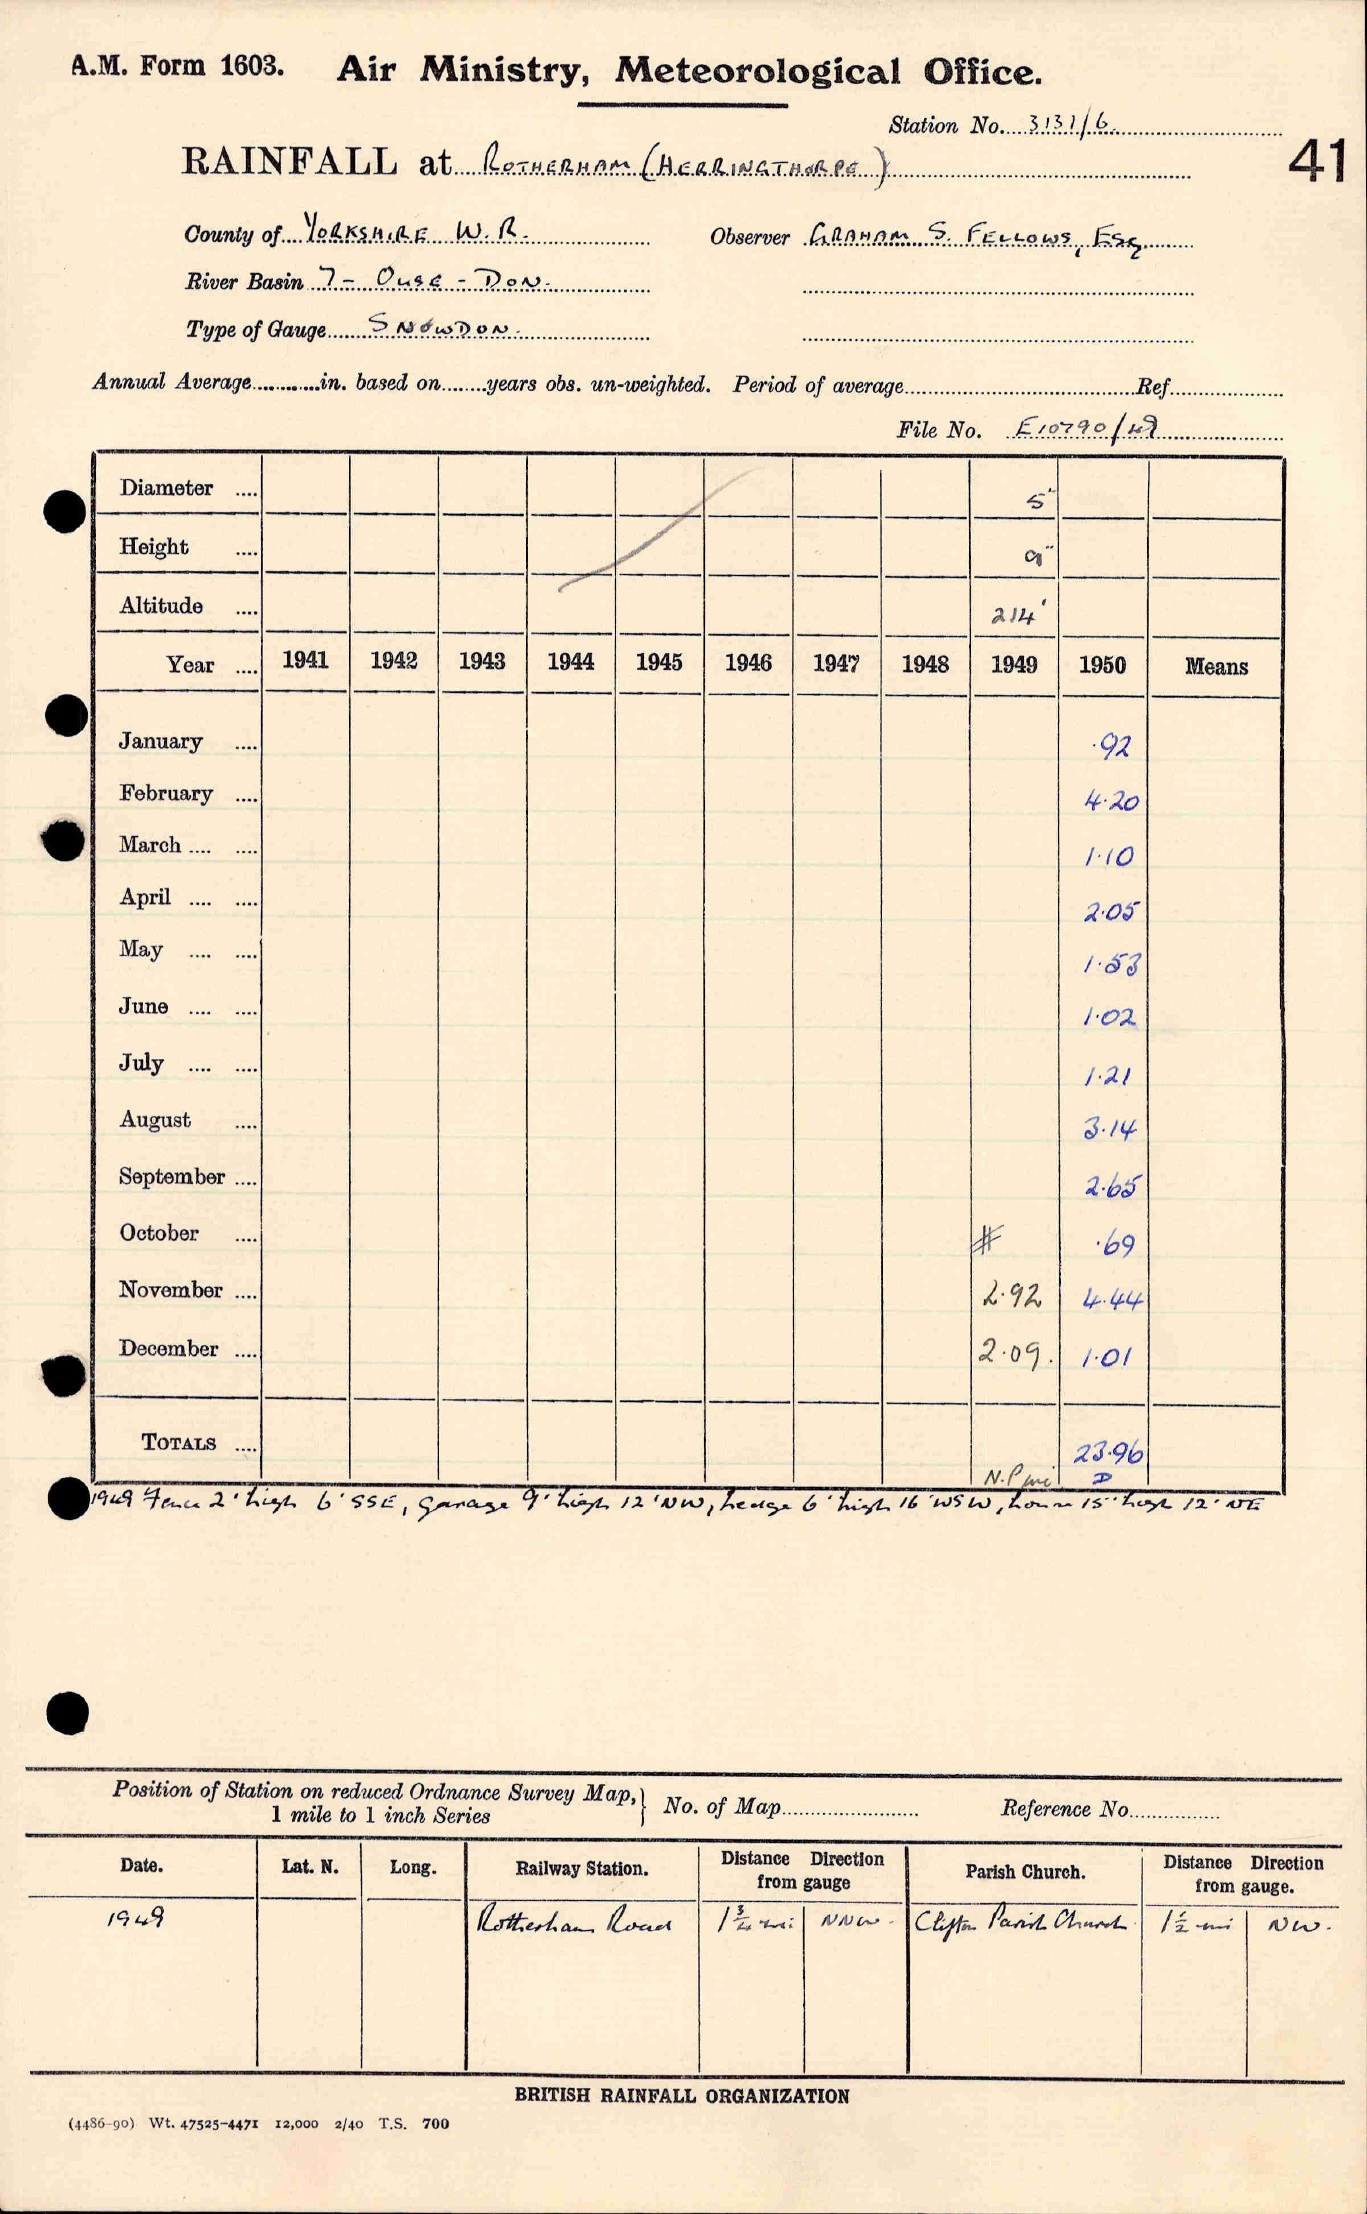 A.M. Form 1603. Air Ministry, Meteorological Office.
Station No. 3131/6.
41
RAINFALL at ROTHERHAM (HERRINGTHORPE)
County of YORKSHIRE W.R. Observer GRAHAM S. FELLOWS, ESQ
River Basin 7 - OUSE - DON.
Type of Gauge SNOWDON.
Annual Average in. based on years obs. un-weighted. Period of average Ref.
File No. E10790/49
Diameter .... 5"
Height .... 9"
Altitude .... 214'
Year .... 1941 1942 1943 1944 1945 1946 1947 1948 1949 1950 Means
January .... .92
February .... 4.20
March .... .... 1.10
April .... .... 2.05
May .... .... 1.53
June .... .... 1.02
July .... .... 1.21
August .... 3.14
September .... 2.65
October .... # .69
November .... 2.92 4.44
December .... 2.09. 1.01
TOTALS .... 23.96
N.P. D
1949 Fence 2' high 6' SSE, garage 9' high 12' NW, hedge 6' high 16' WSW, house 15' high 12' NE
Position of Station on reduced Ordnance Survey Map,} No. of Map Reference No.
1 mile to 1 inch Series
Date. Lat. N. Long. Railway Station. Distance Direction from gauge Parish Church. Distance Direction from gauge.
1949 Rotherham Road 1 3/4 mi NNW. Clifton Parish Church. 1 1/2 mi NW.
BRITISH RAINFALL ORGANIZATION
(4486-90) Wt. 47525-4471 12,000 2/40 T.S. 700